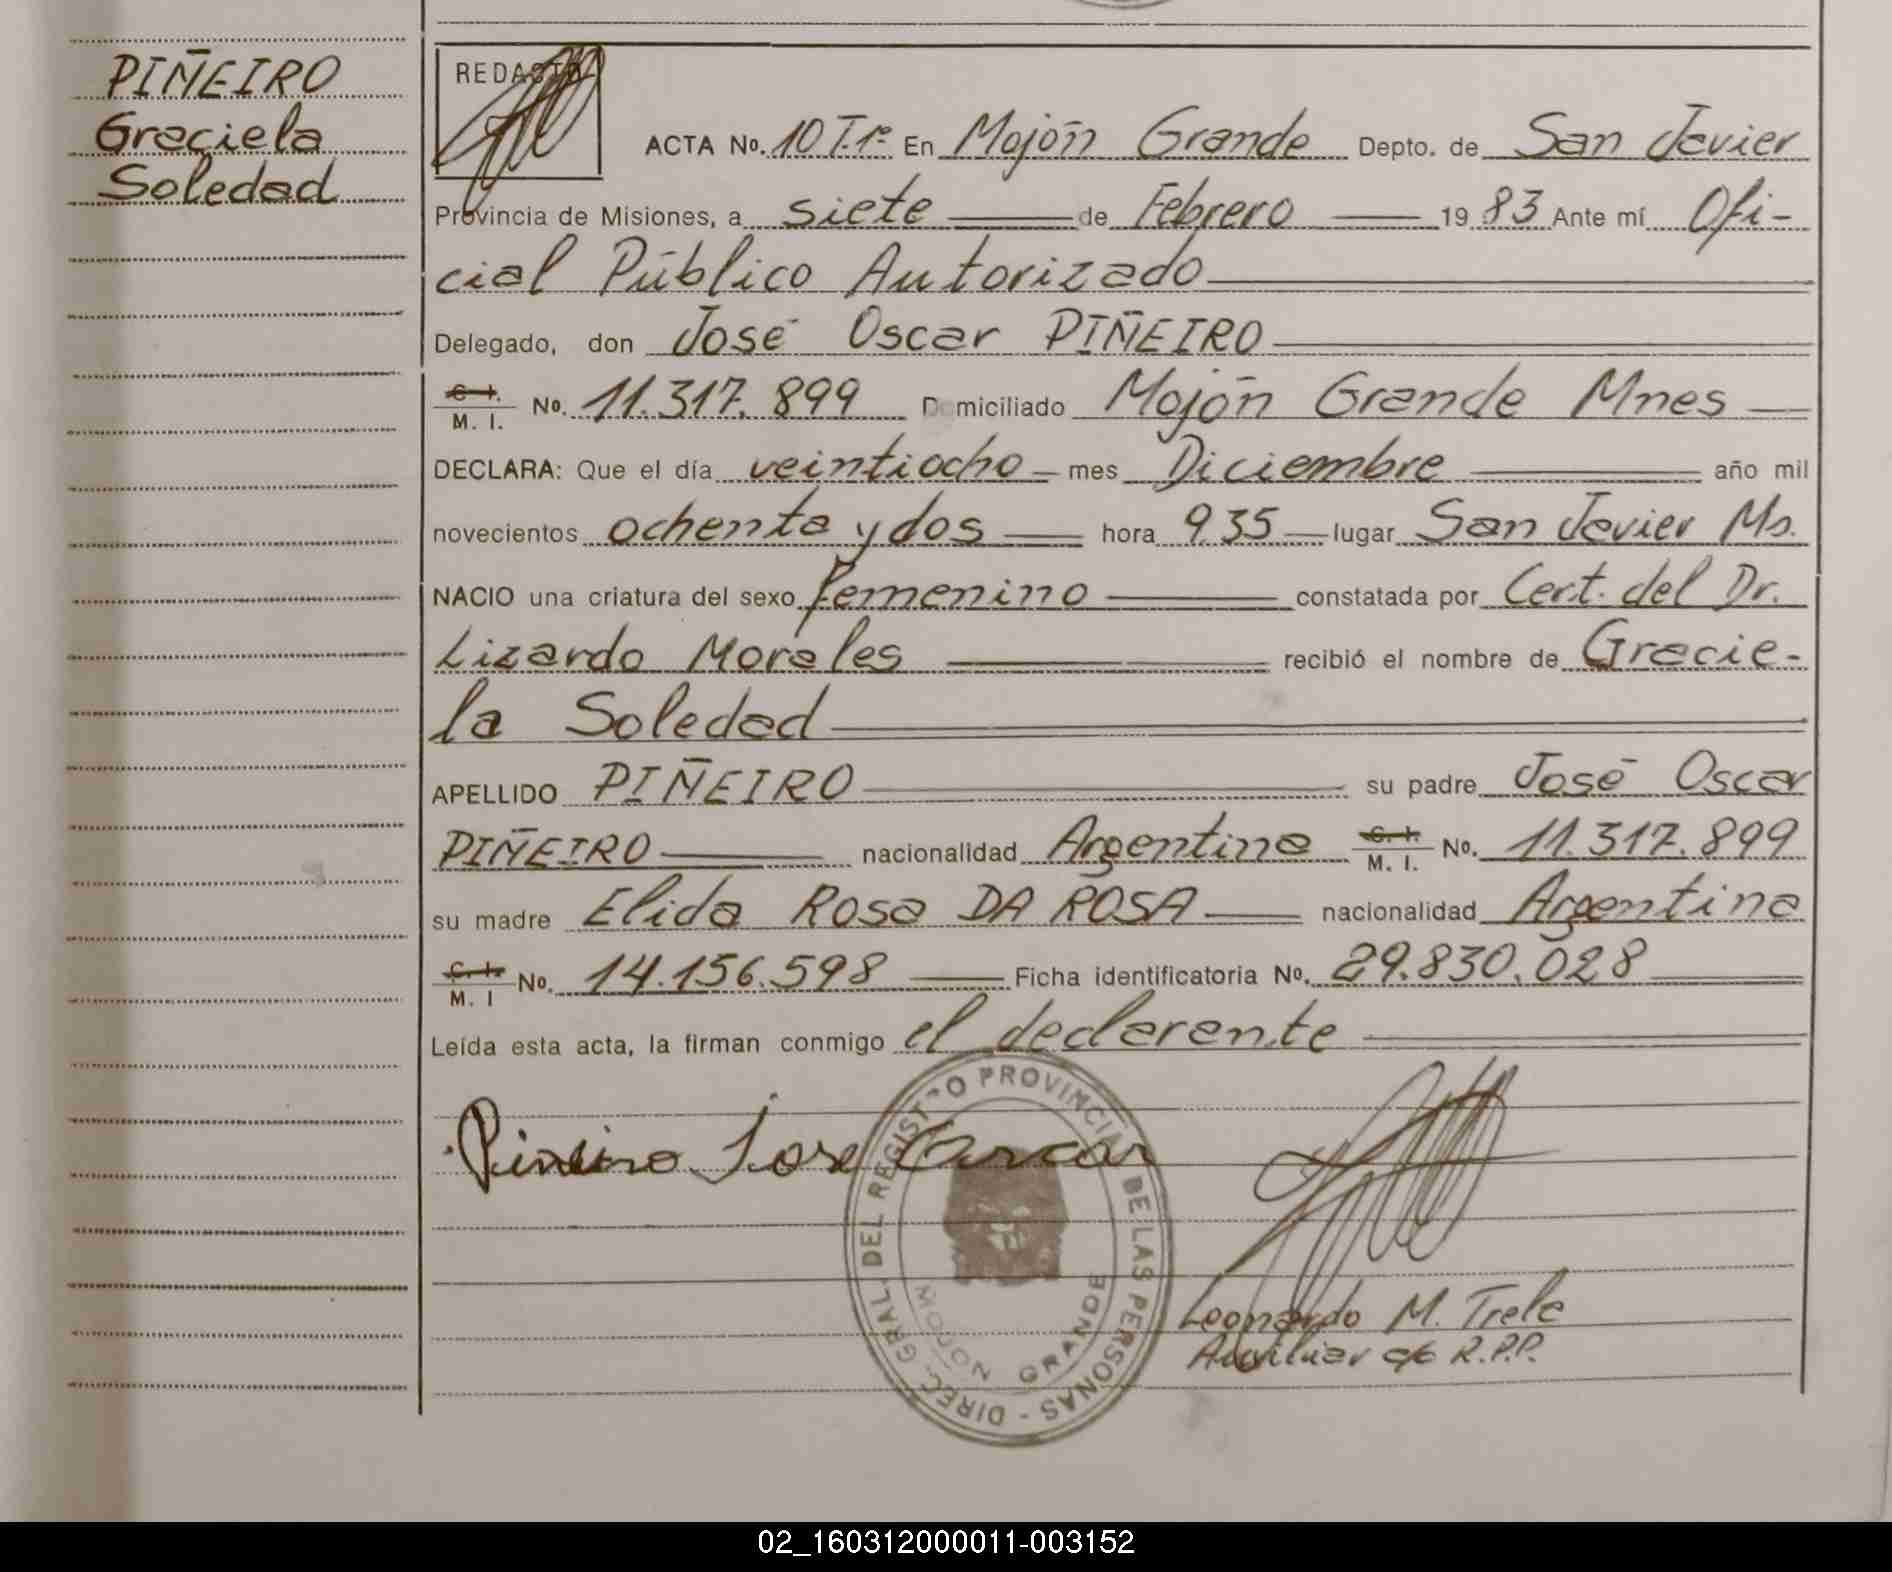 PIÑEIRO
Graciela
Soledad
REDACTO
ACTA No. 10 T.1º En Mojón Grande Depto. de San Javier
Provincia de Misiones, a siete de Febrero 19 83 Ante mí Ofi-
cial Público Autorizado
Delegado, don José Oscar PIÑEIRO
C. I. / M. I. No. 11.317.899 Domiciliado Mojón Grande Mnes
DECLARA: Que el día veintiocho mes Diciembre año mil
novecientos ochenta y dos hora 9.35 lugar San Javier Ms.
NACIO una criatura del sexo femenino constatada por Cert. del Dr.
Lizardo Morales recibió el nombre de Gracie-
la Soledad
APELLIDO PIÑEIRO su padre José Oscar
PIÑEIRO nacionalidad Argentina C. I. / M. I. No. 11.317.899
su madre Elida Rosa DA ROSA nacionalidad Argentina
C. I. / M. I No. 14.156.598 Ficha identificatoria No. 29.830.028
Leída esta acta, la firman conmigo el declarente
Piñeiro Jose Oscar
DIREC. GRAL. DEL REGISTRO PROVINCIAL DE LAS PERSONAS -
MOJON GRANDE
Leonardo M. Trele
Auxiliar R.P.P.
02_160312000011-003152